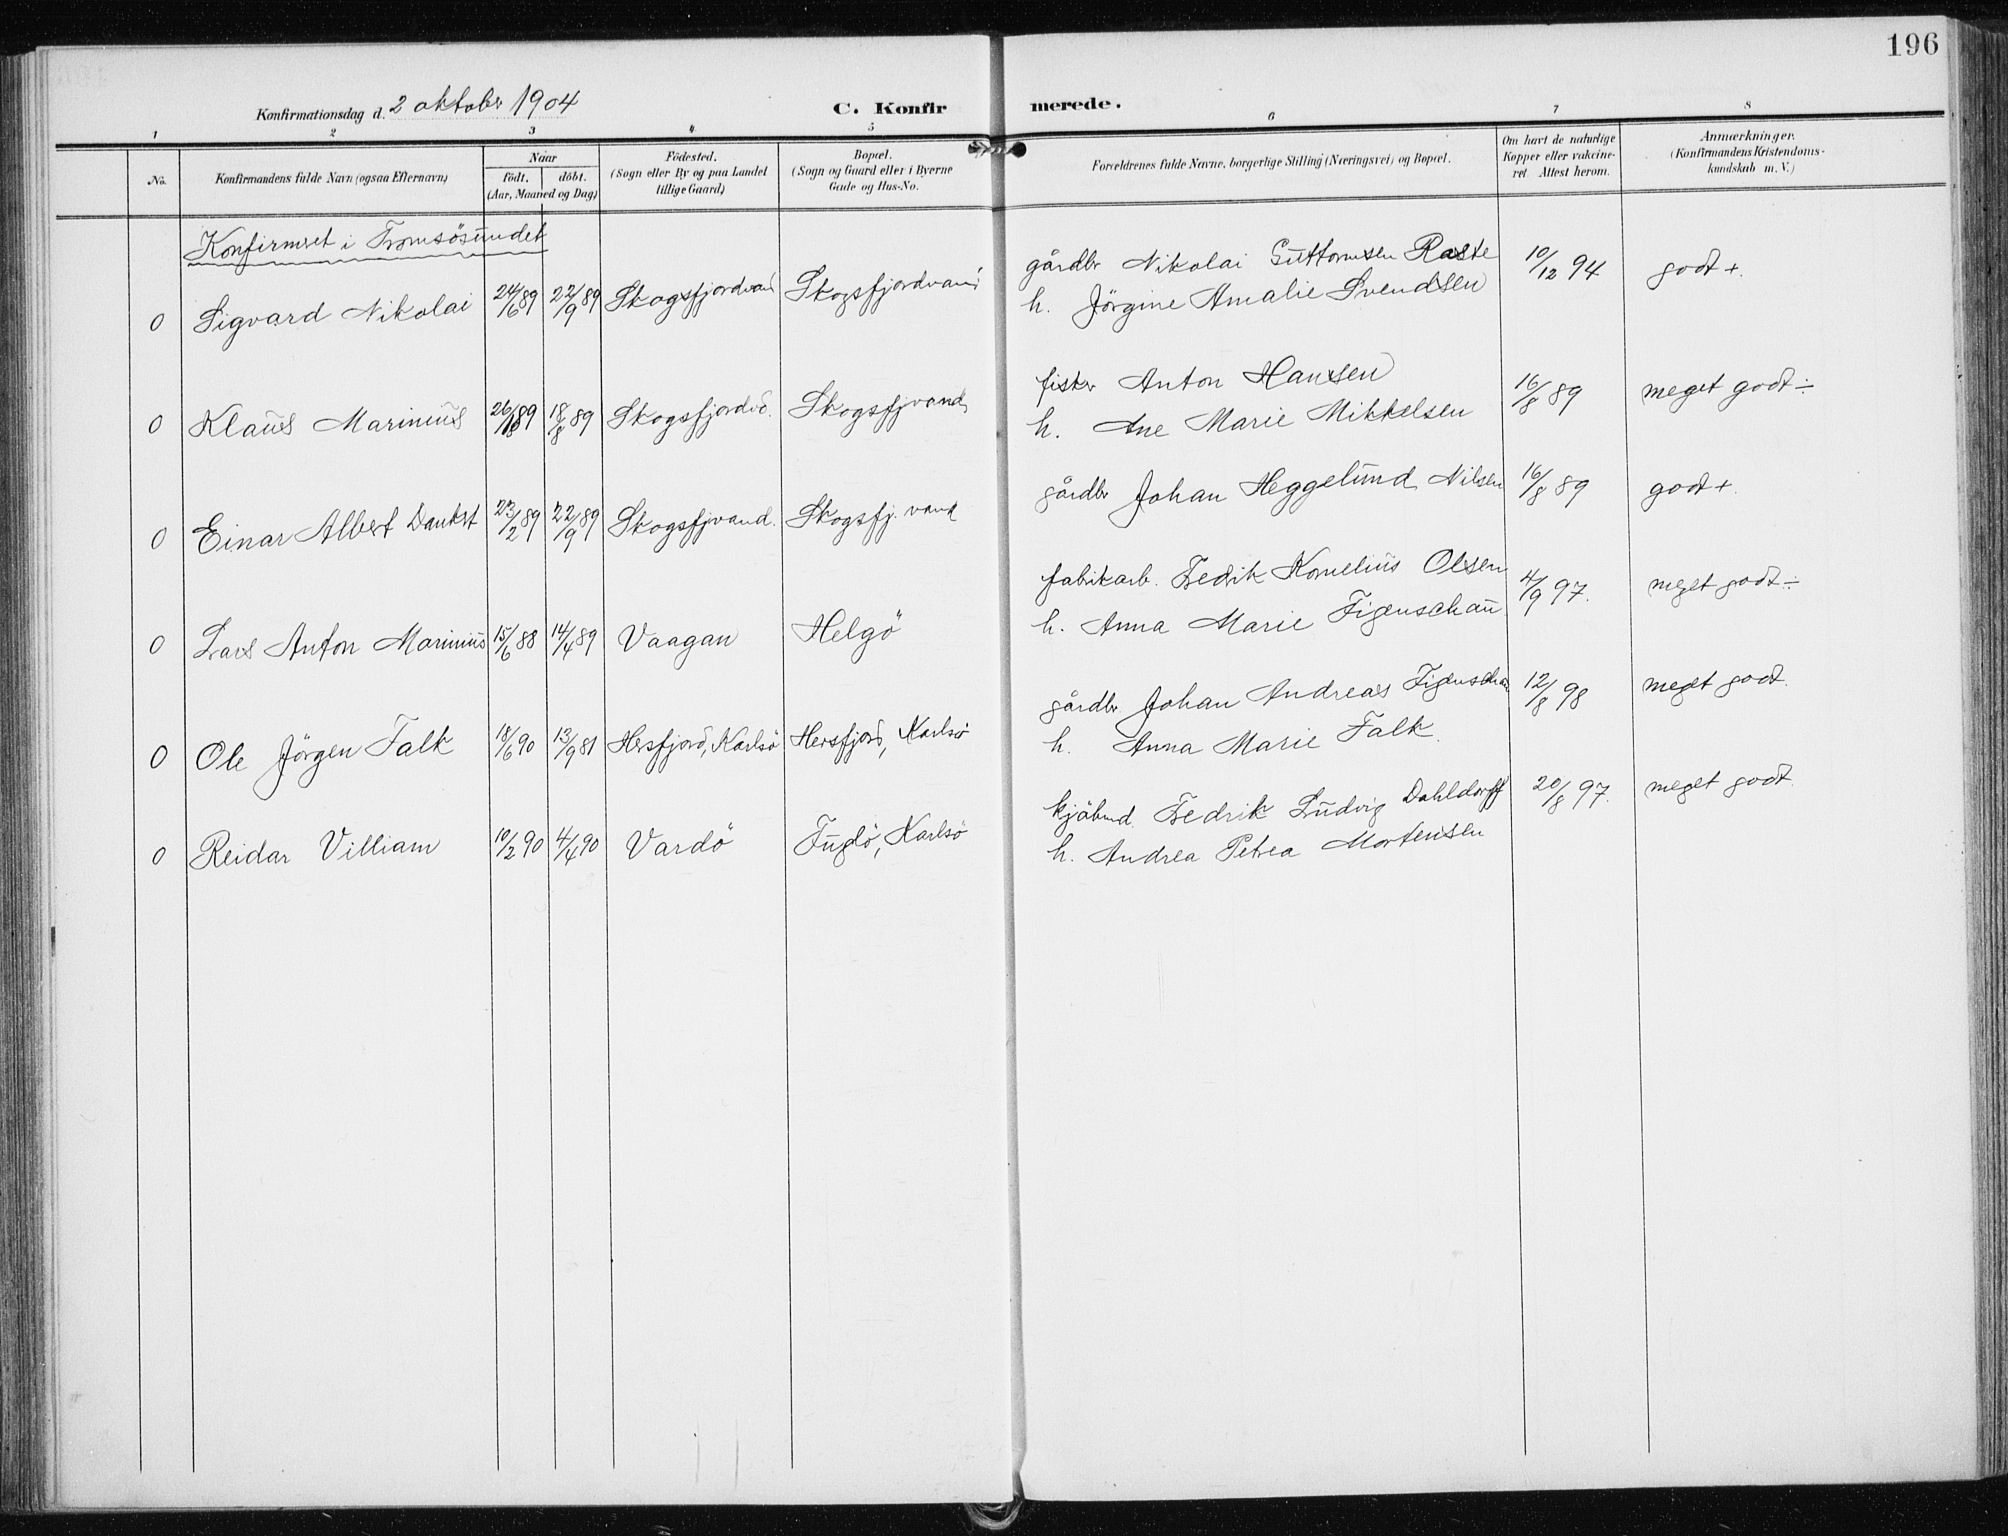 196
Konfirmationsdag d. 2 oktober 1904 C. Konfirmerede.
1 2 3 4 5 6 7 8
No. Konfirmandens fulde Navn (ogsaa Efternavn) Naar født. døbt. (Aar, Maaned og Dag) Födested. (Sogn eller By og paa Landet tillige Gaard) Bopæl. (Sogn og Gaard eller i Byerne Gade og Hus-No. Forældrenes fulde Navne, borgerlige Stilling (Næringsvei) og Bopæl. Om havt de naturlige Kopper eller vakcineret Attest herom. Anmærkninger. (Konfirmandens Kristendomskundskab m. V.)
Konfirmeret i Tromsösundet
0 Sigvard Nikolai 24/6 89 22/9 89 Skogsfjordvand Skogsfjordvand gårdbr Nikolai Guttormsen Raste 10/12 94 godt +.
h. Jörgine Amalie Svendsen
0 Klaus Marinius 89 18/8 89 Skogsfjordvd. Skogsfjvand fisker Anton Hansen 16/8 89 meget godt ÷
h. Ane Marie Mikkelsen
0 Einar Albert Dankert 23/2 89 22/9 89 Skogsfjvand. Skogsfj. vand gårdbr Johan Heggelund Nilsen 16/8 89 godt +.
0 Lars Anton Marinius 15/6 88 14/4 89 Vaagan Helgö fabrikarb. Fredrik Kornelius Olsen 4/9 97. meget godt ÷
h. Anna Marie Figenschau
0 Ole Jörgen Falk 18/6 90 13/9 81 Hersfjord, Karlsö Hersfjord, Karlsö gårdbr Johan Andreas Figenschau 12/8 98 meget godt.
h. Anna Marie Falk.
0 Reidar Villiam 10/2 90 4/4 90 Vardö Fuglö, Karlsö kjöbmd. Fredrik Ludvig Dahldorff 20/8 97. meget godt.
h. Andrea Petrea Mortensen